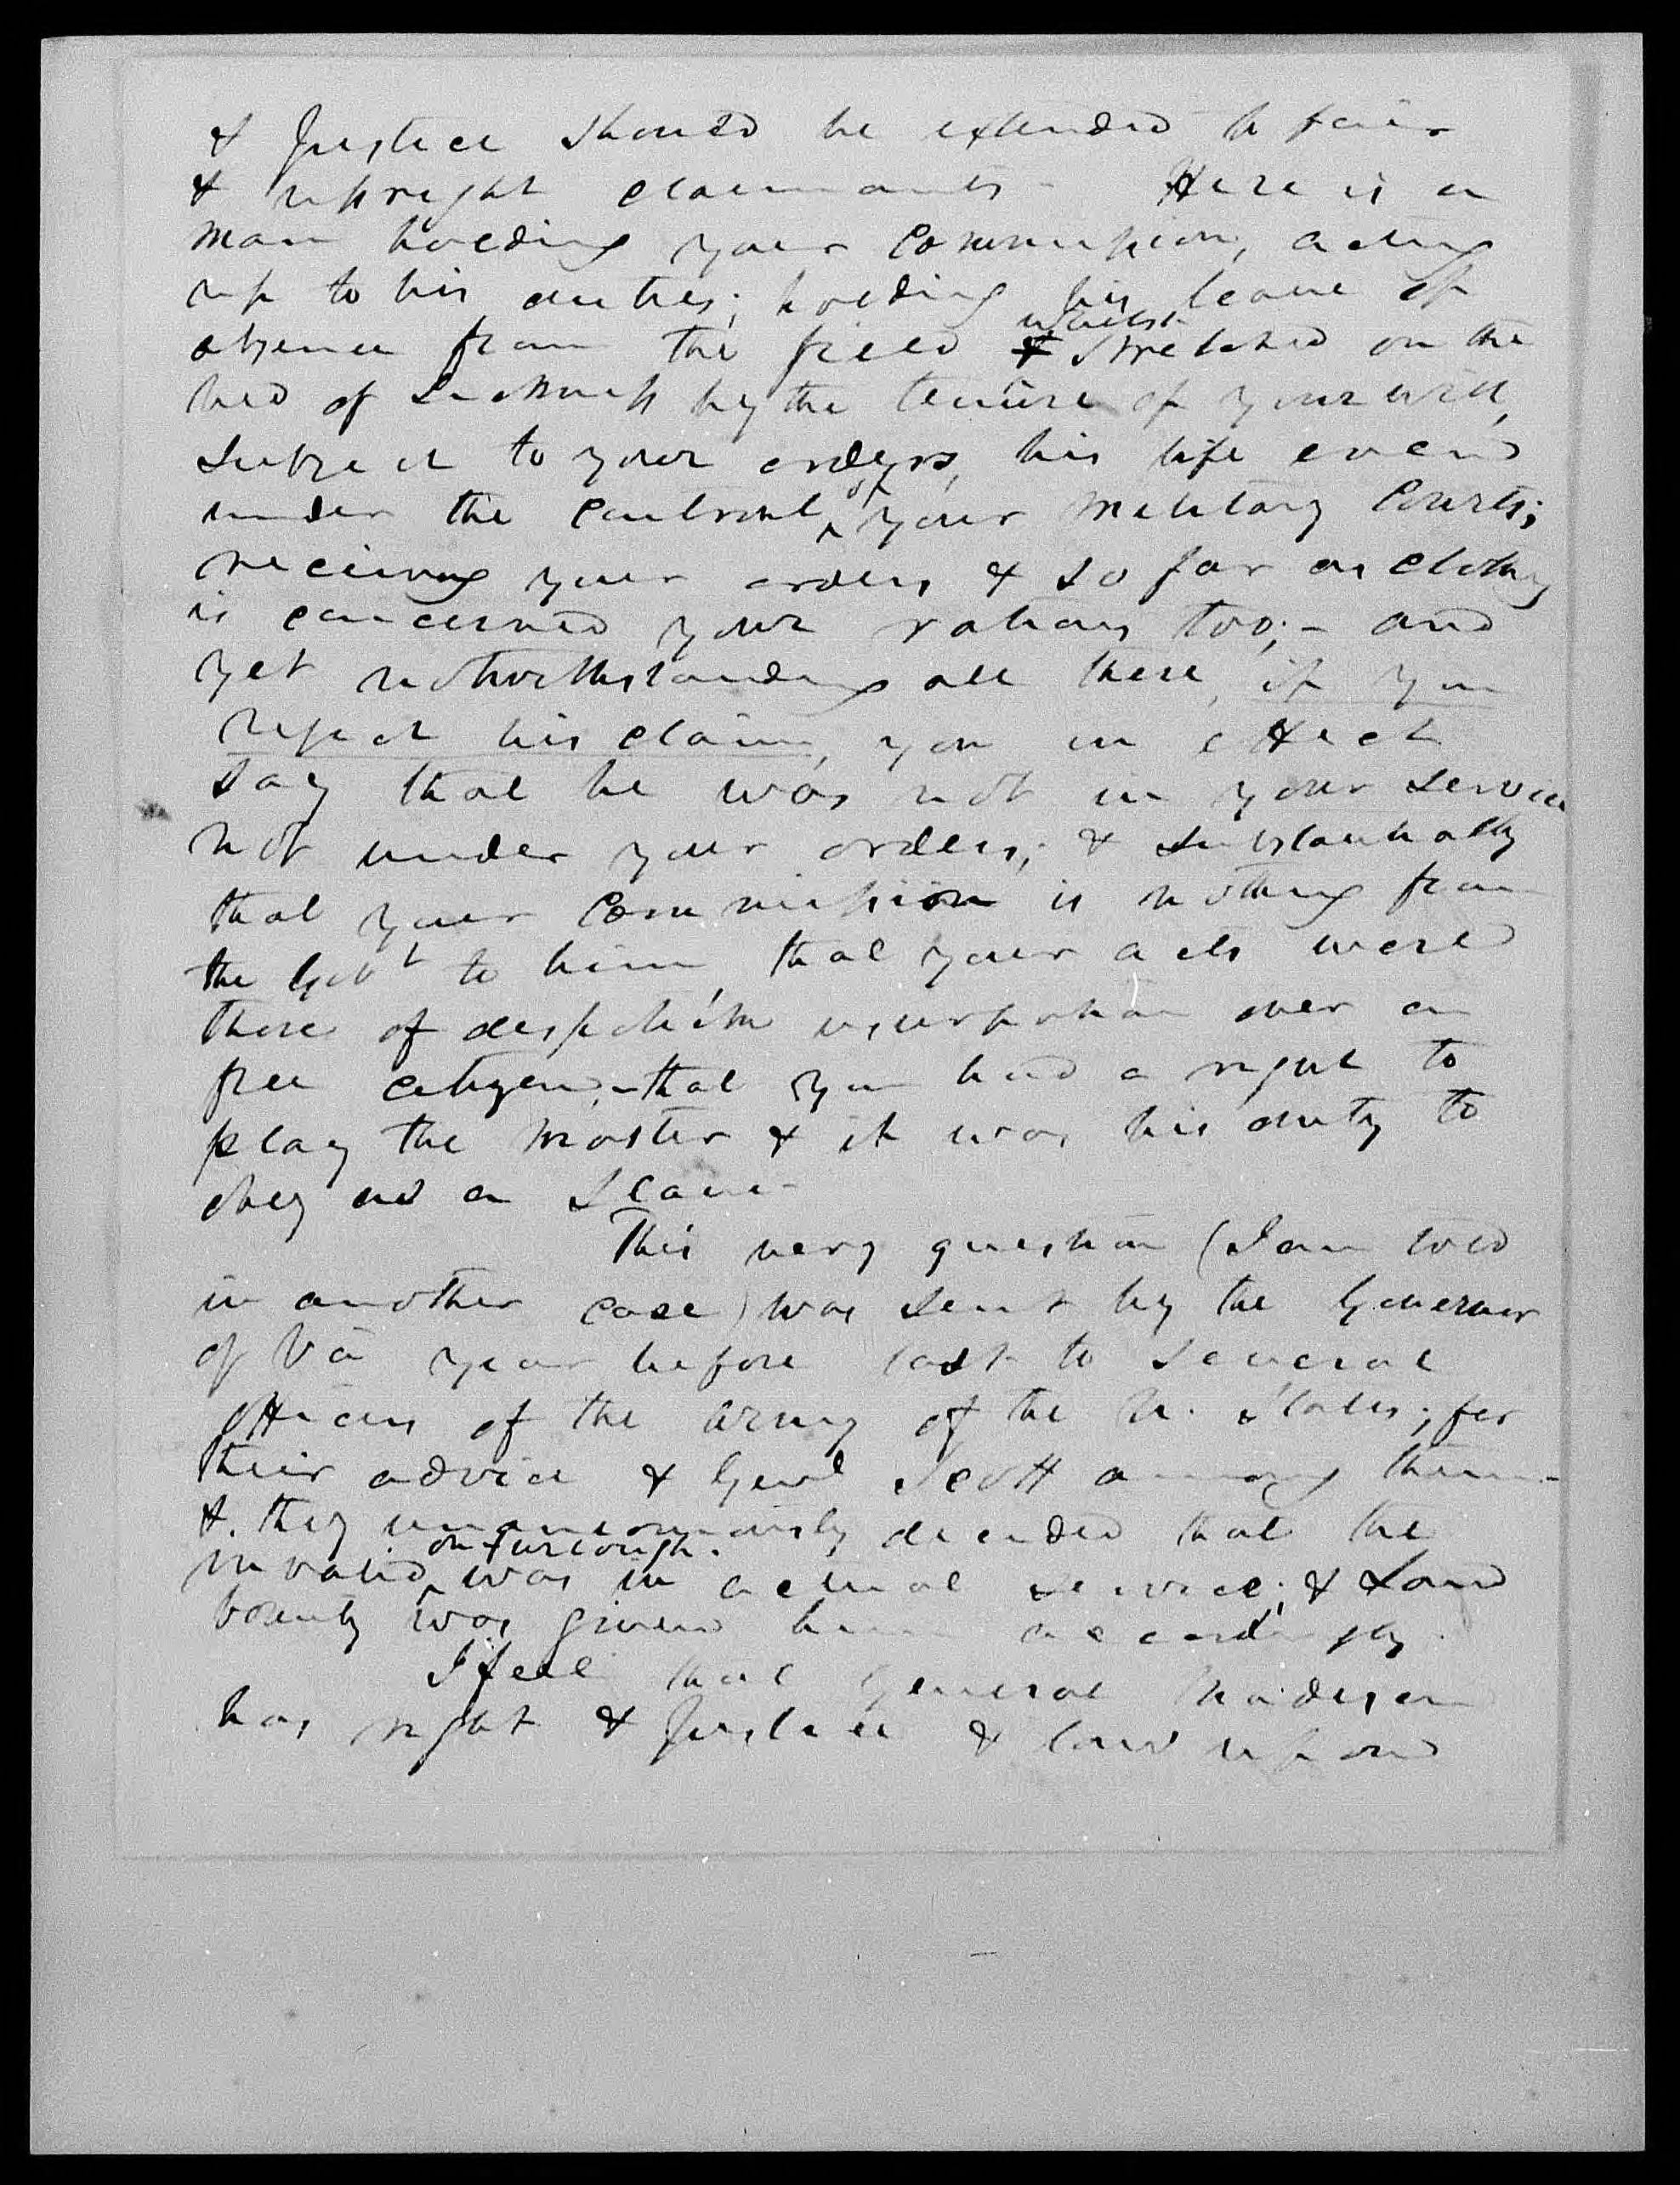 & Justice should be extended to fair
& upright claimants - Here is a
man holding your Commission, acting
up to his duties; holding his leave of
absence from the field whilst stretched on the
bed of Sickness by the tenure of your will,
subject to your orders, his life even
under the controul of your military Courts;
receiving your orders & so far as clothing
is concerned your rations too; - and
yet notwithstanding all these, if you
reject his claim, you in effect
say that he was not in your service
not under your orders; & substantially
that your Commission is nothing from
the Govt to him, that your acts were
those of despotism usurpation over a
free citizen, - that you had a right to
play the master & it was his duty to
obey as a Slave -
This very question (I am told
in another case) was sent by the Governor
of Va year before last to several
officers of the army of the U. States; for
their advice & Genl Scott among them -
&. they unanimously decided that the
invalid on furlough. was in actual service; & Land
bounty was given him accordingly.
I feel that General Madison
has right & Justice & law upon